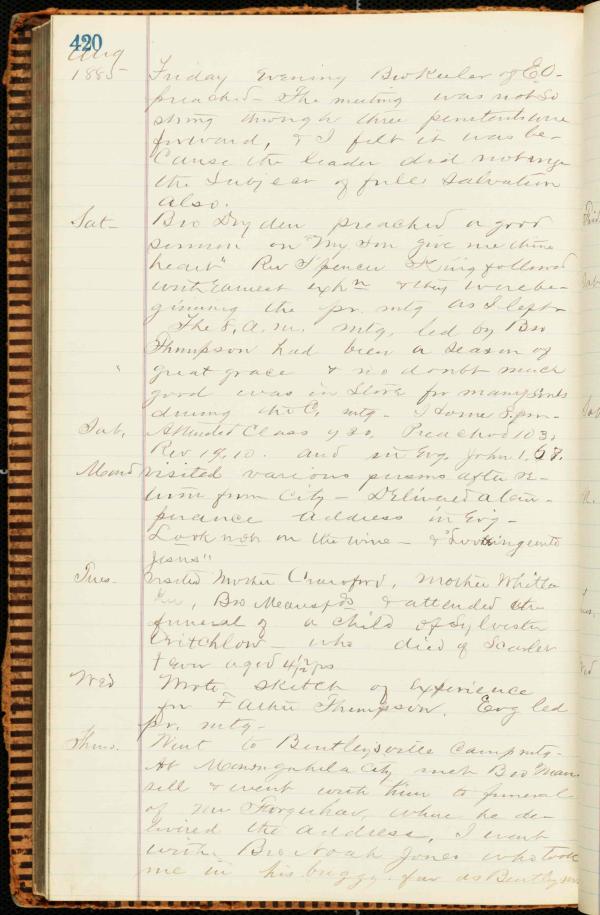 420
Aug
1885
Friday evening Bro Keeler of E.O.
preached - The meeting was not so
strong though three penitents were
forward, & I felt it was be-
cause the leader did not urge
the subject of full salvation
also.
Sat- Bro Dryden preached a good
sermon on "My son give me thine
heart" Rev Spencer King followed
with earnest exhn & they were be-
ginning the pr. mtg as I left
The 8, a.m. mtg, led by Bro
Thompson had been a season of
great grace & no doubt much
good was in store for many souls
during the C. mtg - Home 8. pm -
Sab, Attended Class 9 30, Preached 10 3
Rev 19, 10. and in Evg. John 1, 67.
Mond visited various persons after re-
turn from City - Delivered a tem-
perance address in Evg -
Look not on the wine - & "Looking unto
Jesus"
Tues- visited Mother Crawford, Mother Whitta
, Bro & attended the
funeral of a child of Sylvester
Critchlow - who died of Scarlet
Fever aged 4 1/2 yrs
Wed Wrote sketch of experience
for Father Thompson. Evg led
pr. mtg-
Thurs. Went to Bentleysville Camp mtg-
At Monongahela City met Bro Man
sell & went with him to funeral
of Mr Farquhar, where he de-
livered the address, I went
with Bro Noah Jones who took
me in his buggy far as Bentleysv